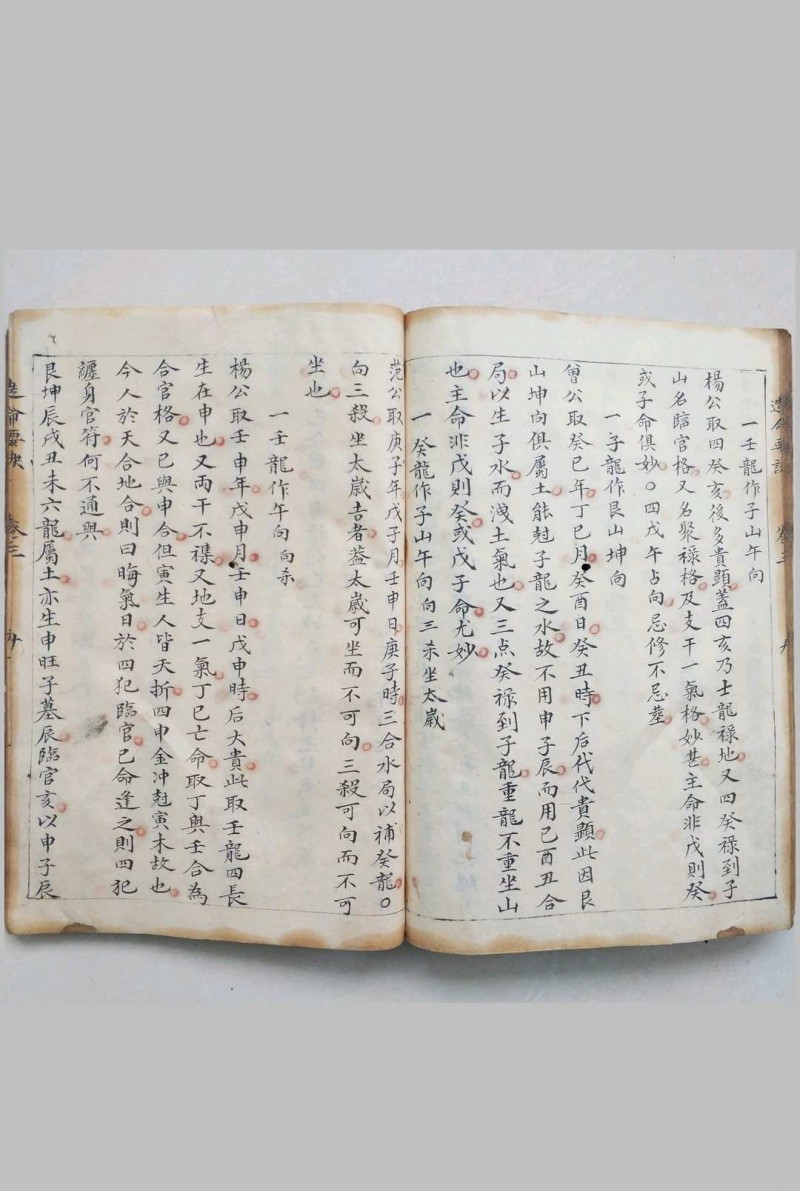 一壬龍作子山午向
楊公取四癸亥後多貴顕蓋四亥乃士龍祿地又四癸祿到子
山名臨官格又名聚祿格及支干一氣格妙甚主命非戊則癸
或子命俱妙〇四戊午占向忌修不忌塟
一子龍作艮山坤向
曾公取癸巳年丁巳月癸酉日癸丑時下后代代貴顕此因艮
山坤向俱屬土能尅子龍之水故不用申子辰而用巳酉丑合
局以生子水而洩土氣也又三点癸祿到子龍重龍不重坐山
也主命非戊則癸或戊子命尤妙
一癸龍作子山午向 向三杀坐太歲
范公取庚子年戊子月壬申日庚子時三合水局以補癸龍〇
向三殺坐太歲吉者葢太歲可坐而不可向三殺可向而不可
坐也
一壬龍作午向 向杀
楊公取壬申年戊申月壬申日戊申時后大貴此取壬龍四長
生在申也又両干不襍又地支一氣丁巳亡命取丁與壬合為
合官格又巳與申合但寅生人皆夭折四申金冲尅寅木故也
今人於天合地合則曰晦氣日於四犯臨官巳命逢之則四犯
纏身官符何不通與
艮坤辰戌丑未六龍屬土亦生申旺子墓辰臨官亥以申子辰
卷三